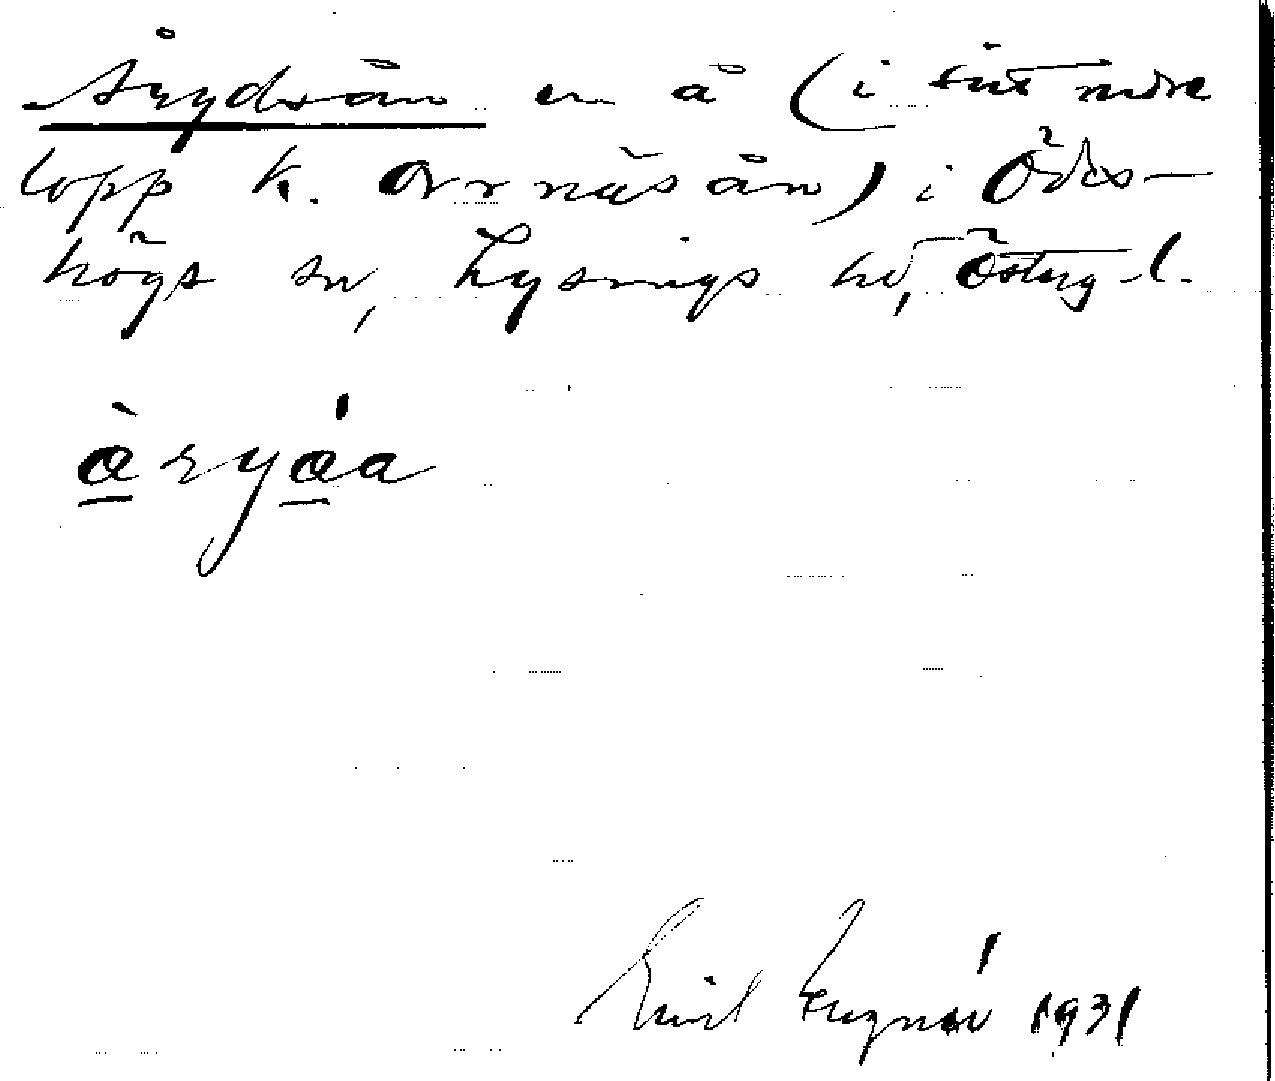 Årydsån en å (i sitt nedre
lopp k. Orrnäsån) i Ödes-
högs sn, Lysings hd, Östergl.
å̀ryǻa
Emil 1931